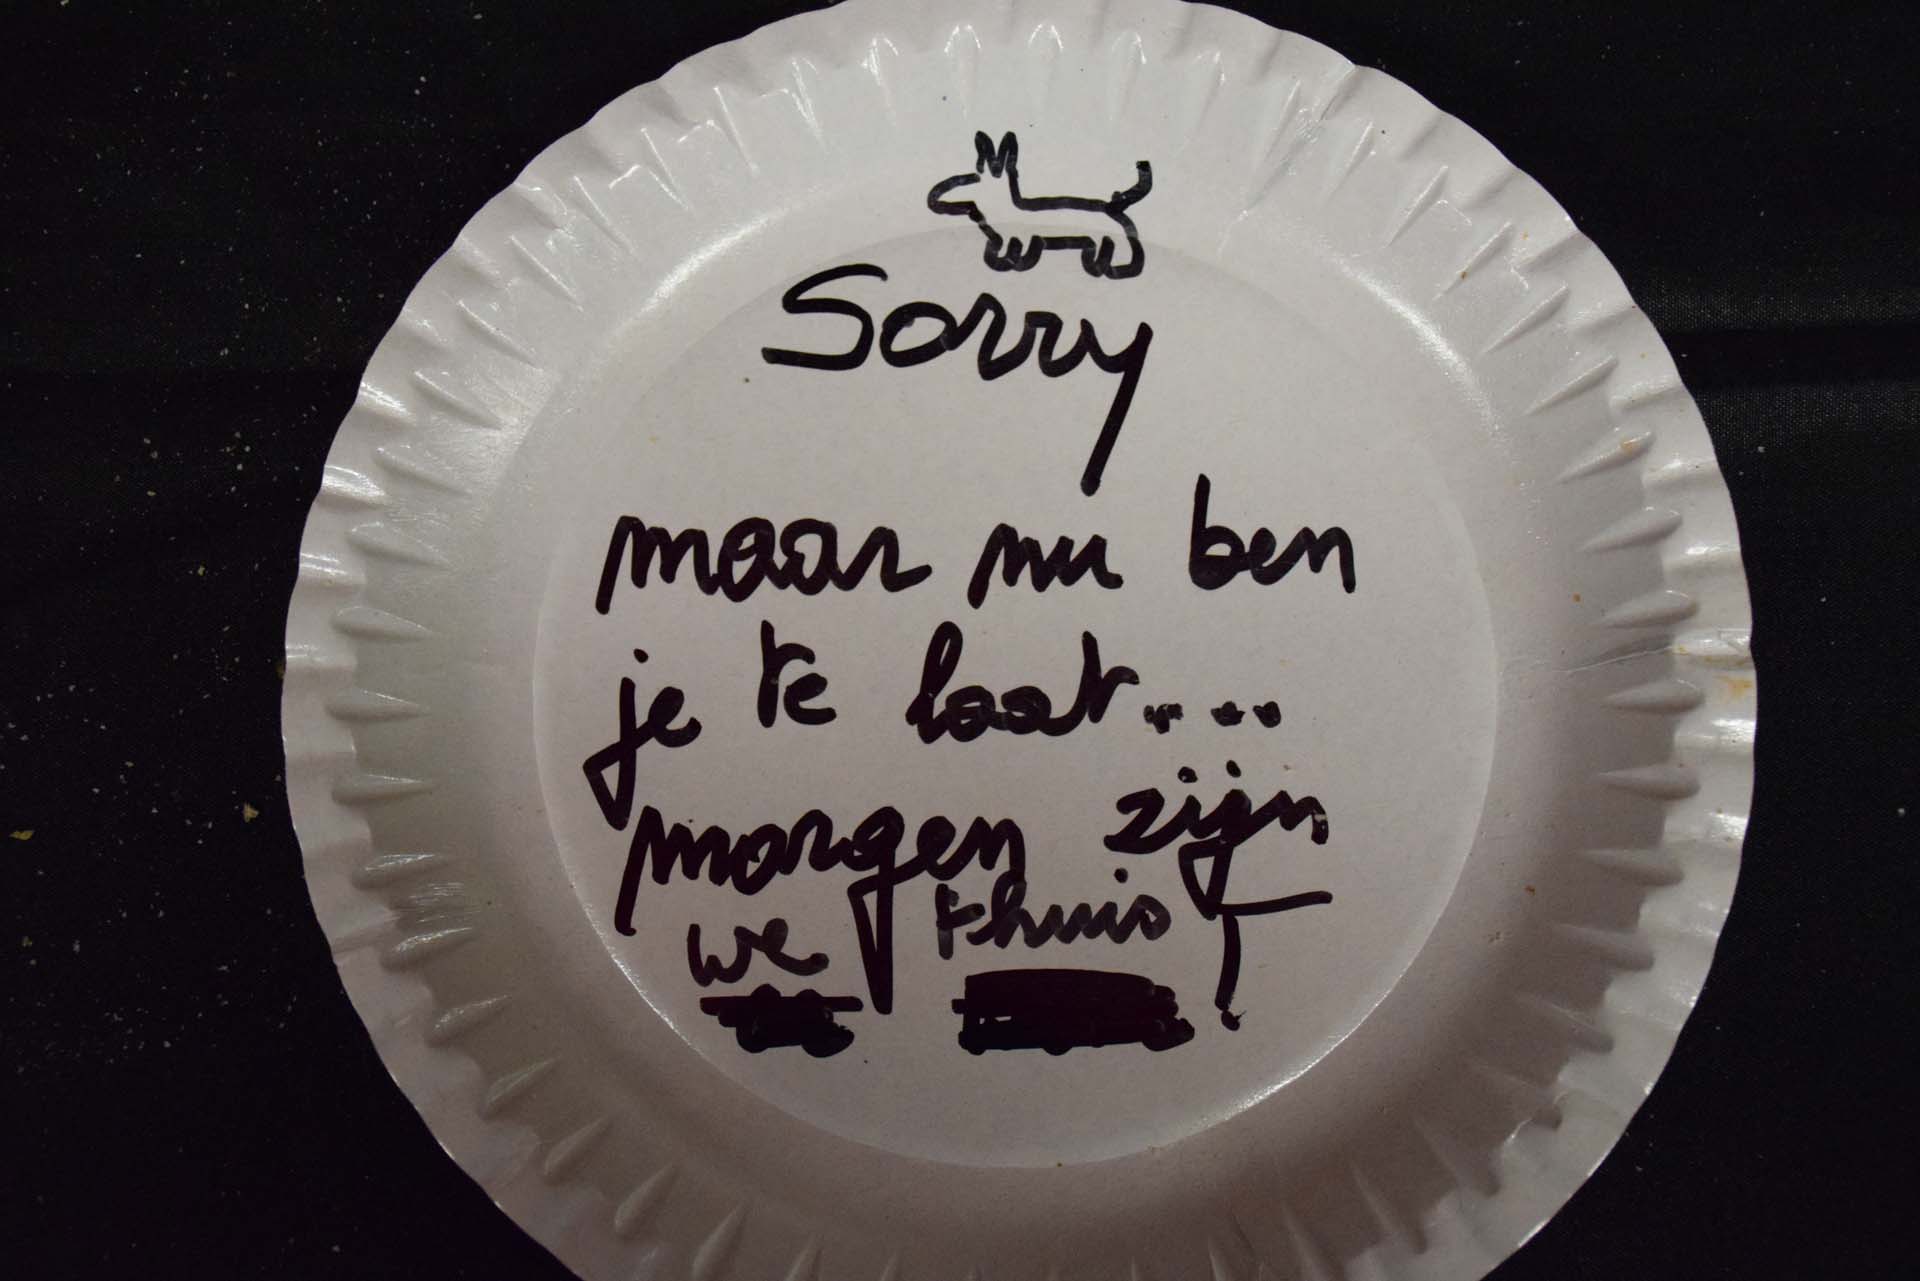 Sorry
maar nu ben
je te laat....
morgen zijn
we thuis